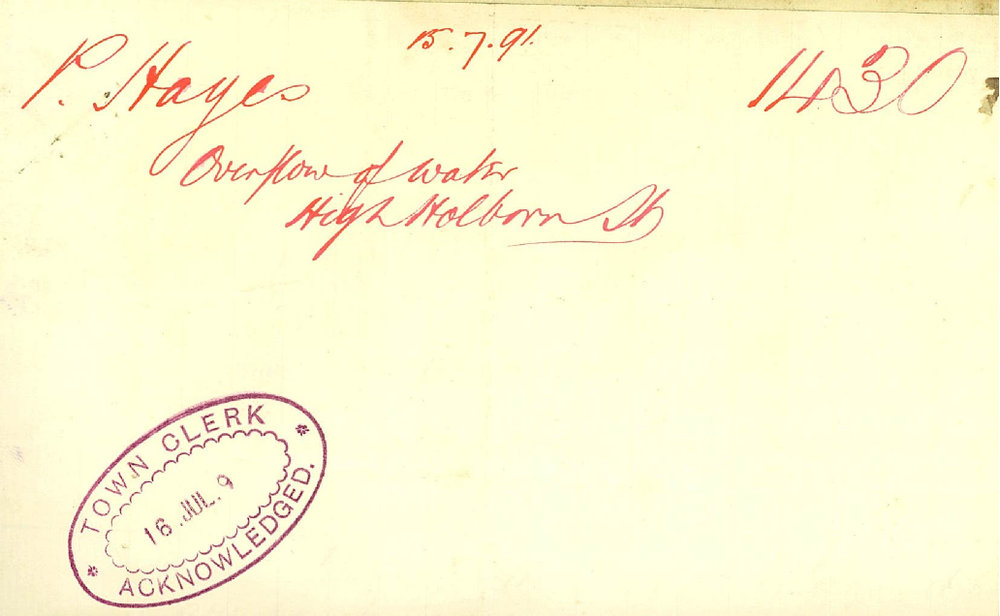 15.7.91.
P. Hayes
1430
Overflow of water
High Holborn St
TOWN CLERK
16 JUL. 9
ACKNOWLEDGED.